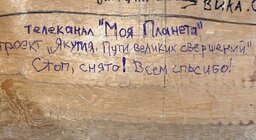 ВИКА.
телеканал "Моя Планета"
проект "Якутия. Пути великих свершений"
Стоп, снято! Всем спасибо!